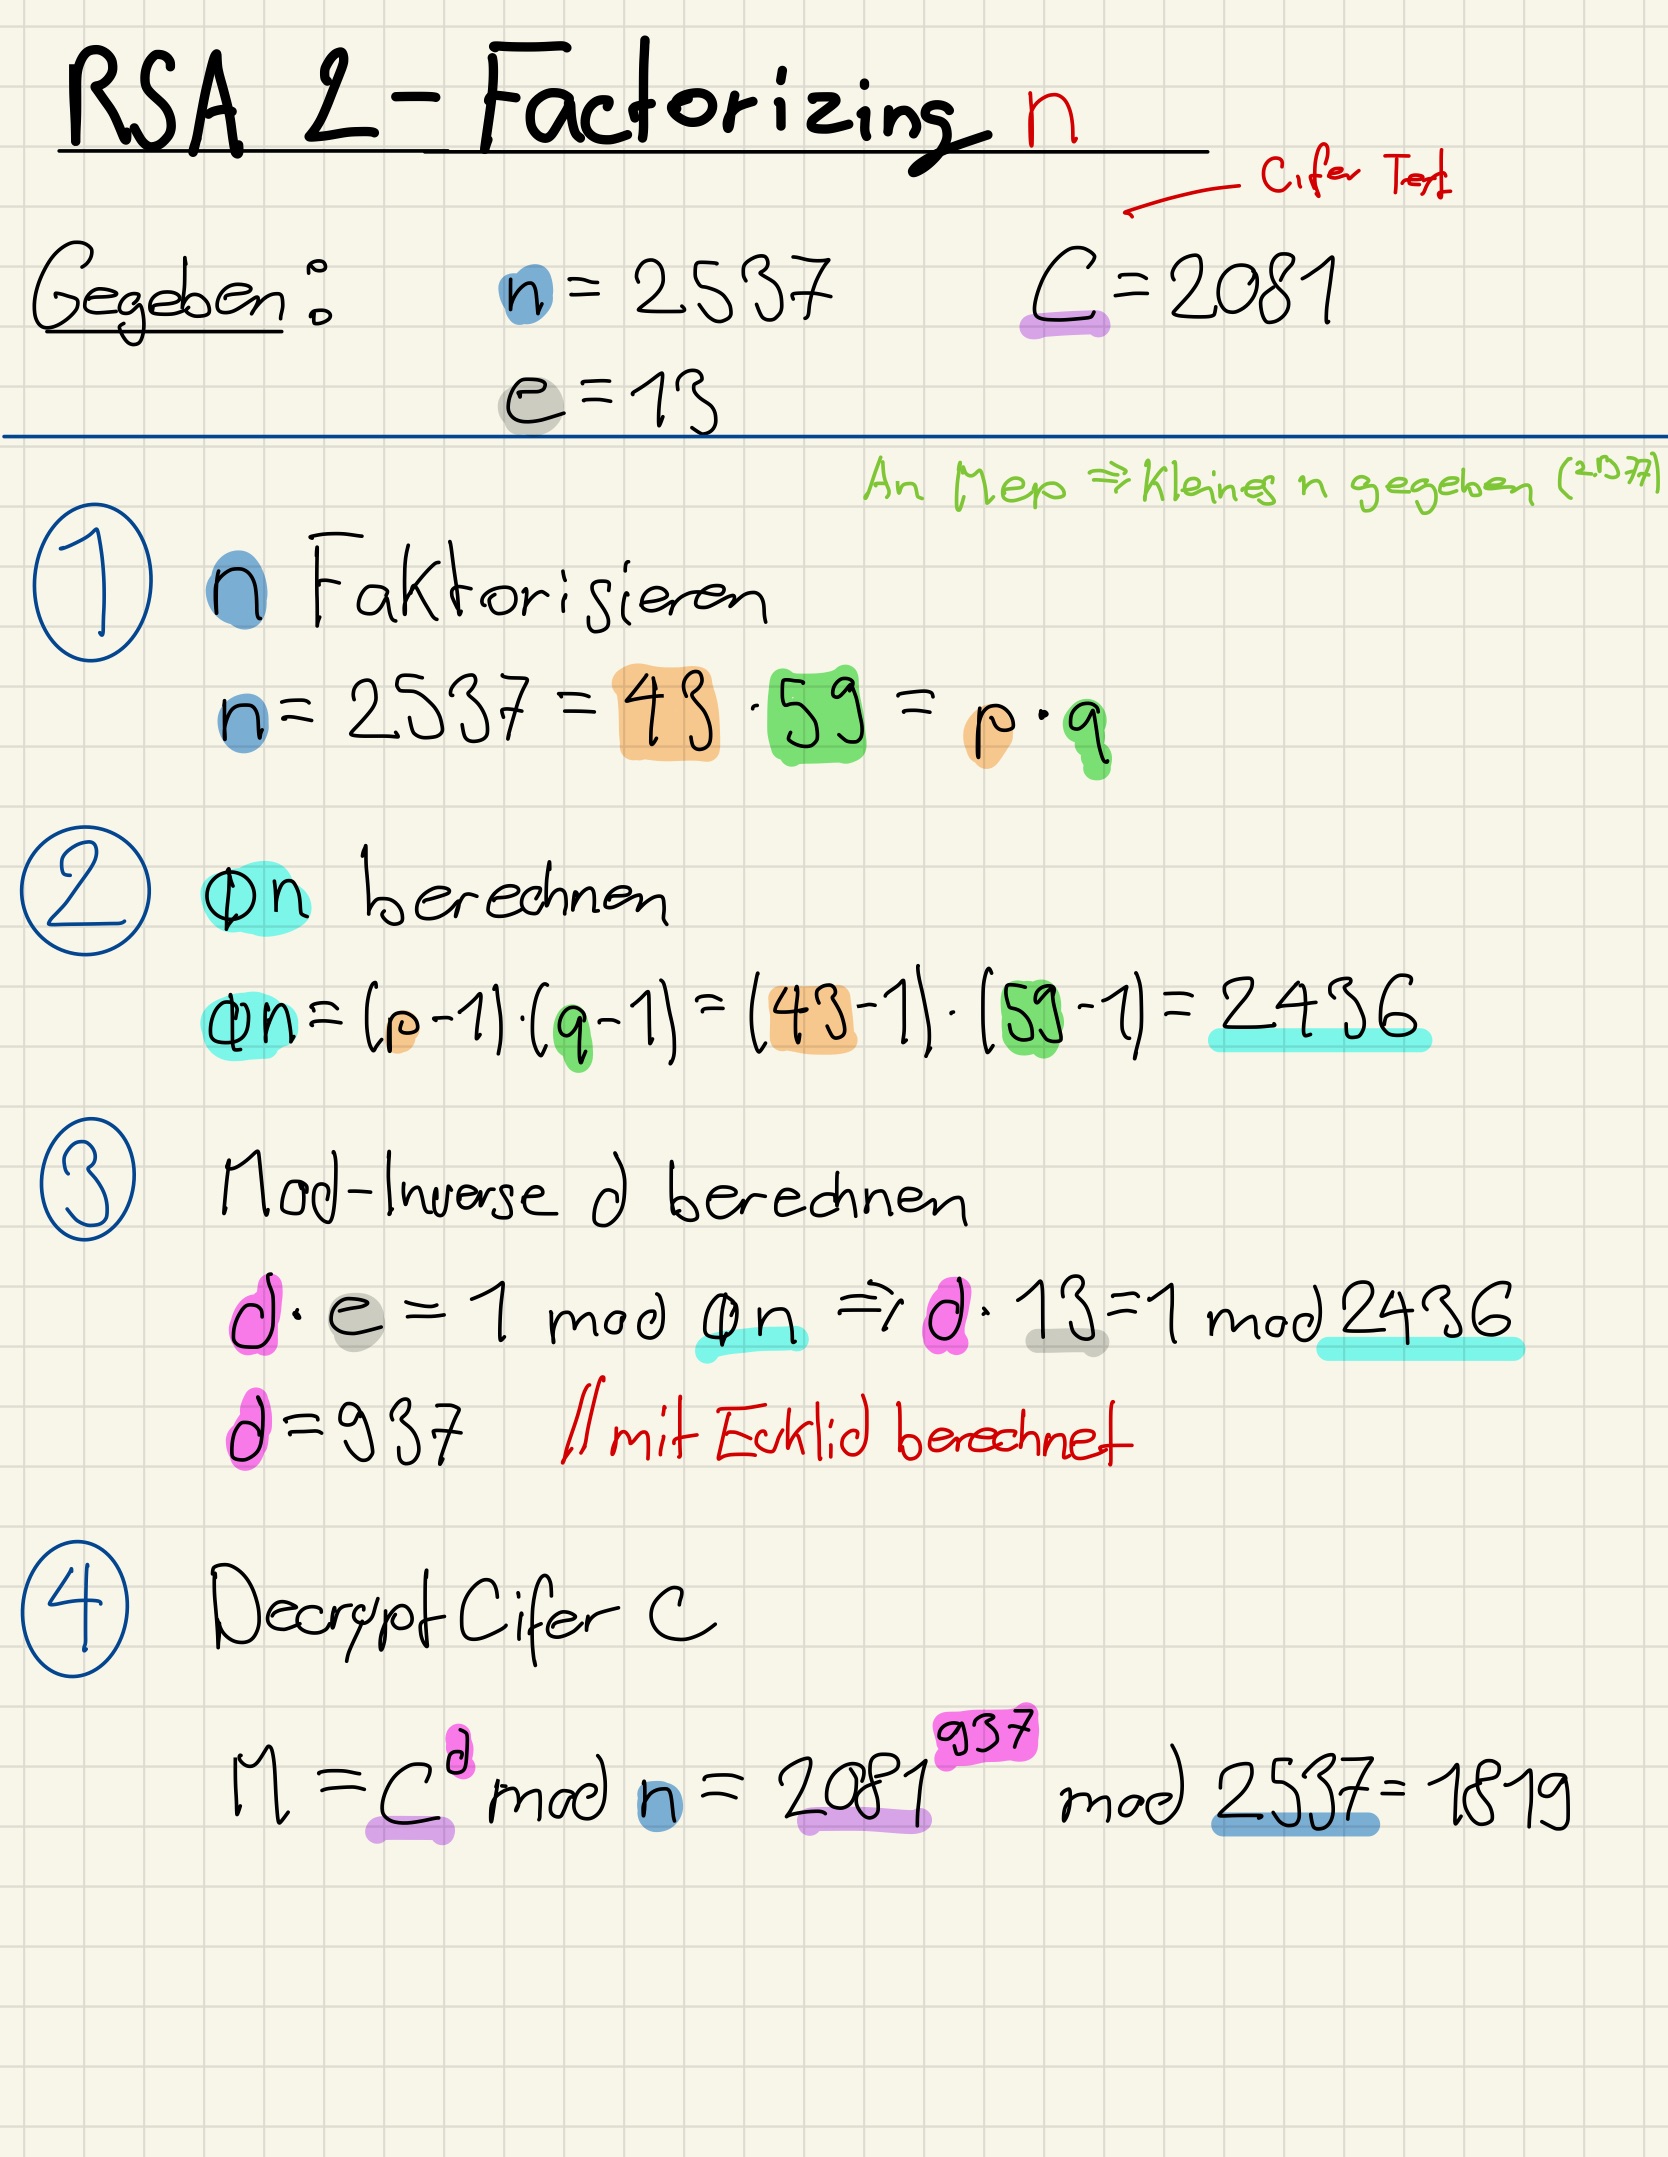 RSA 2 - Factorizing n
Cifer Text
Gegeben: n = 2537 C = 2081
e = 13
An Merp ⇒ Kleines n gegeben
1 n Faktorisieren
n = 2537 = 43 · 59 = p · q
2 φn berechnen
φn = (p-1) · (q-1) = (43-1) · (59-1) = 2436
3 Mod-Inverse d berechnen
d · e = 1 mod φn ⇒ d · 13 = 1 mod 2436
d = 937 // mit Ecklid berechnet
4 Decrypt Cifer C
M = C^d mod n = 2081^937 mod 2537 = 1819